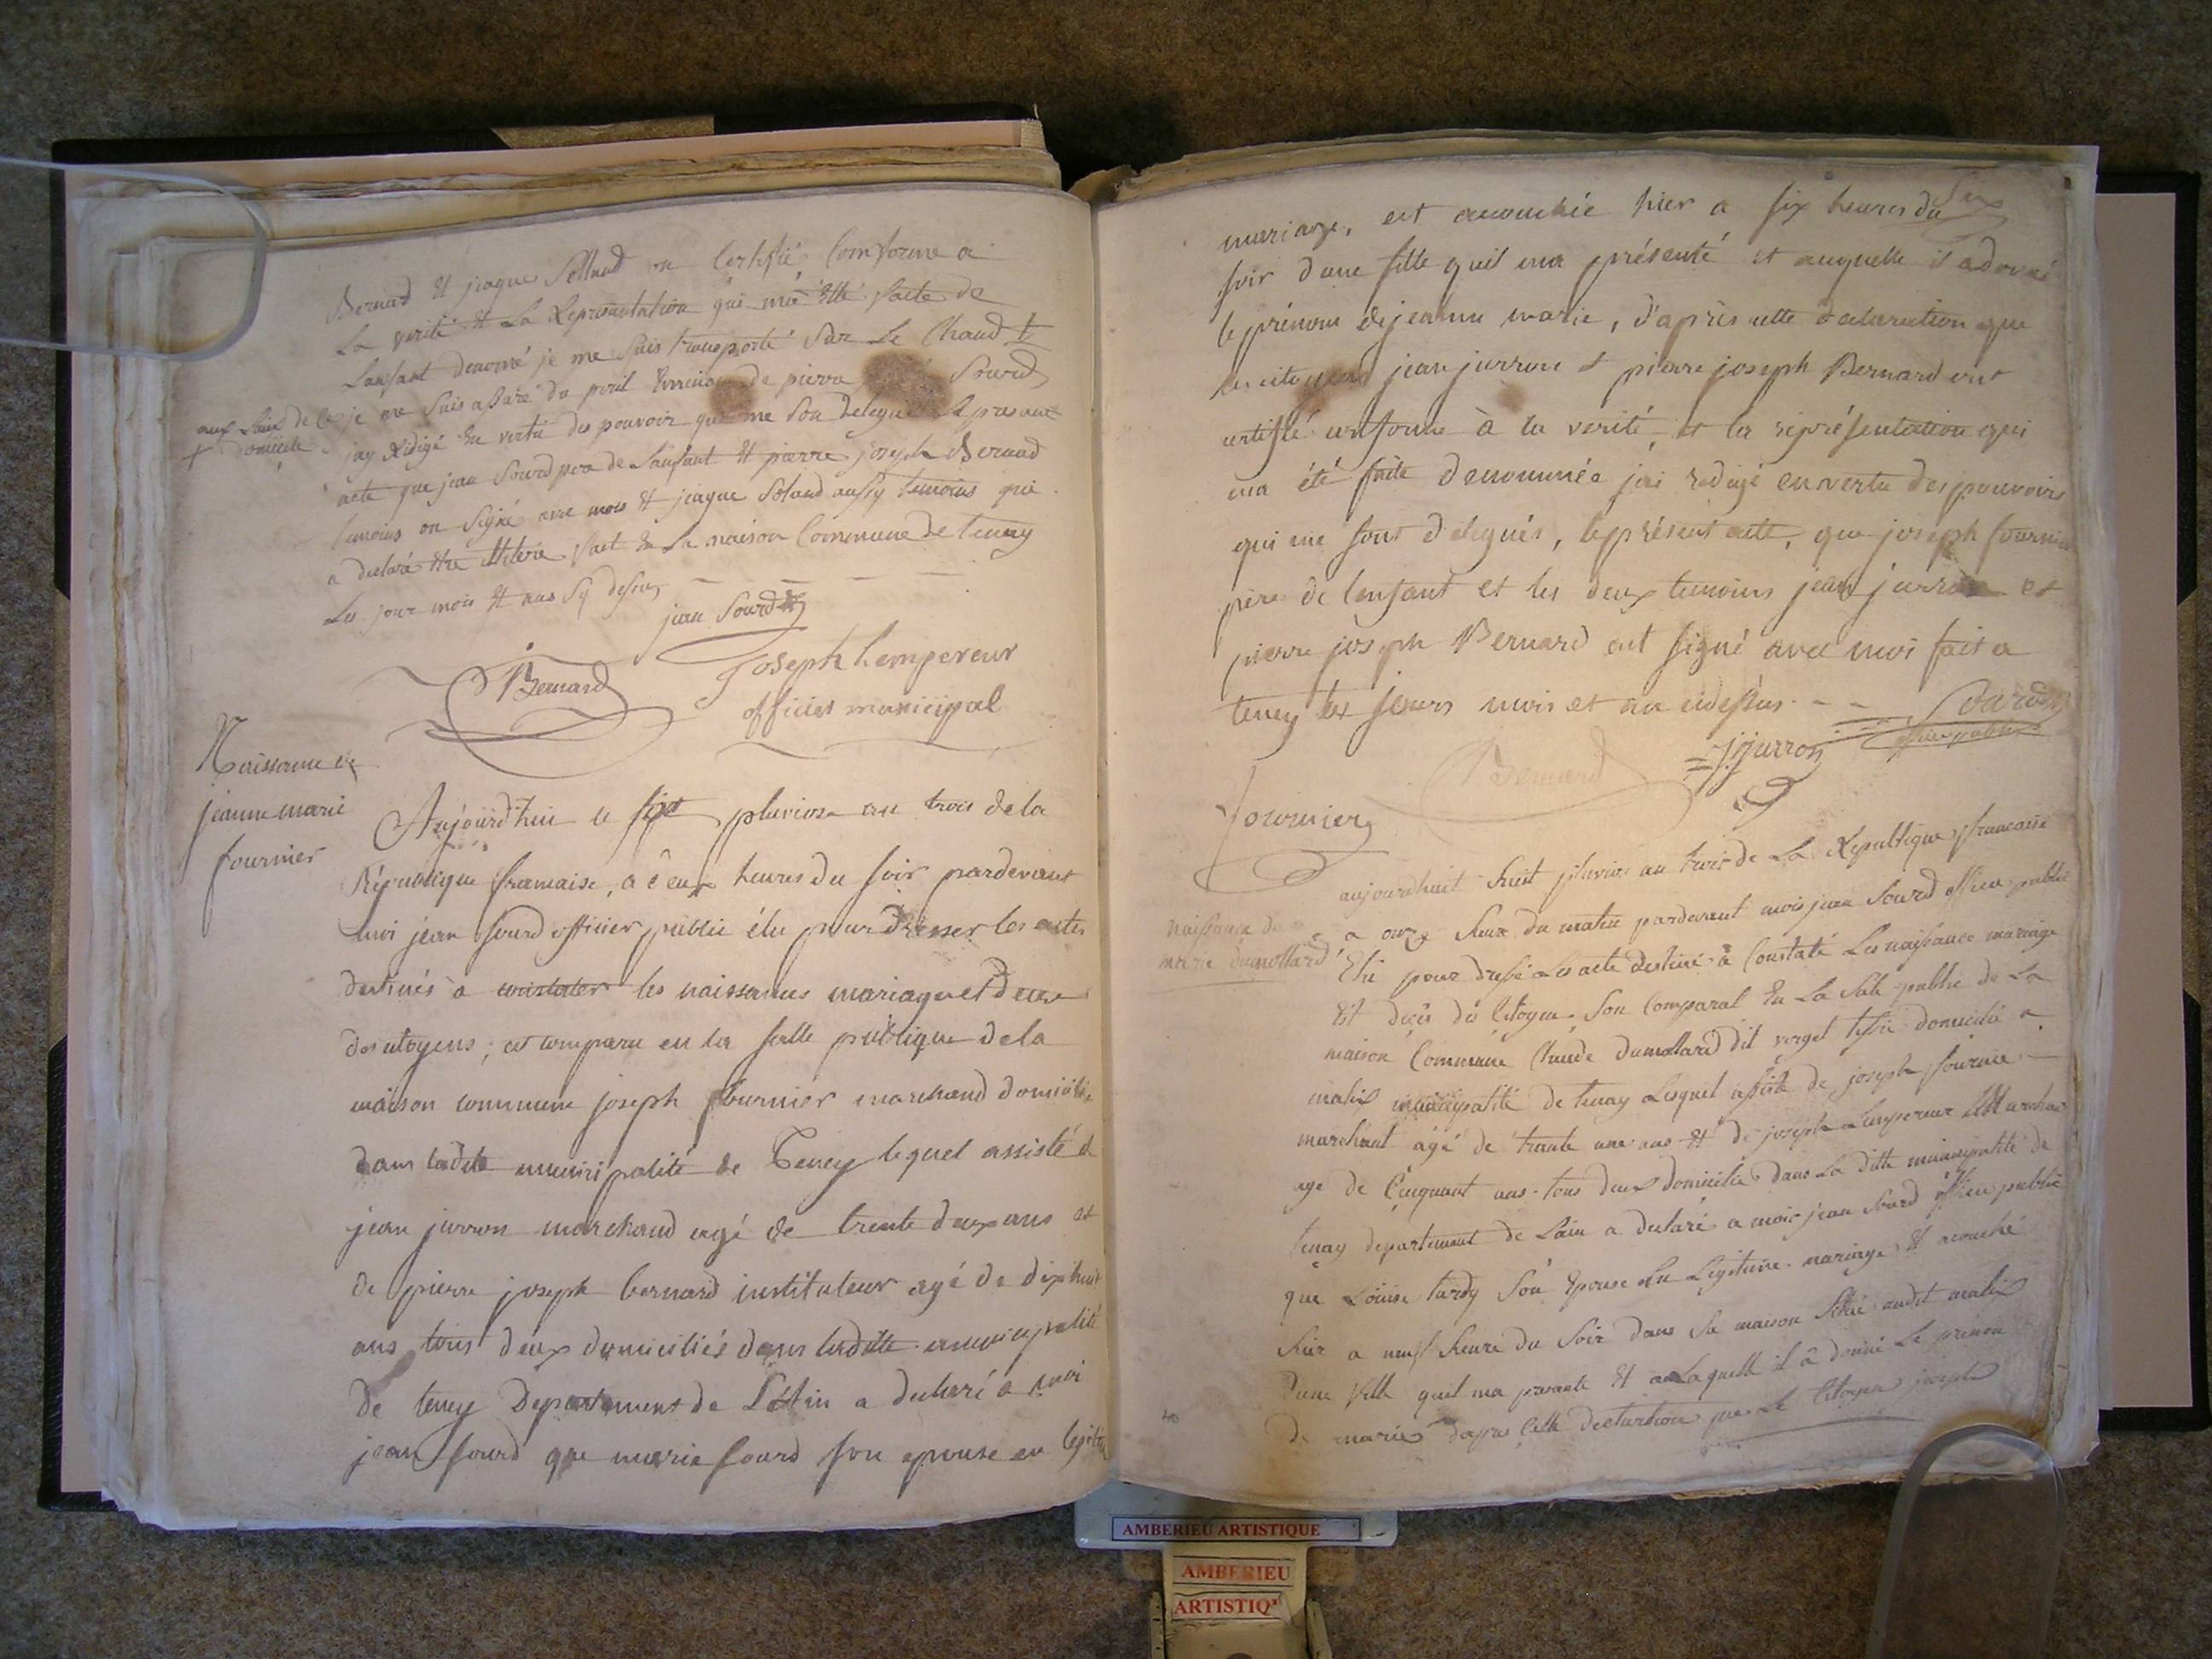 Bernad et jaque Solland on Certifié Comforme a
La verité et La Representation qui ma Etté faite de
Lanfant denomé je me suis transporté Sur Le Chand +
je me suis assuré du peril de pierre Sourd
aux Lieux de Ce
+ domicile
jay Redigé En vertu des pouvoir qui me Son delegué Le presant
acte que jean Sourd pere de Lanfant et pierre joseph Bernad
temoins on Signé avec mois et jaque Soland aussy temoins qui
a declaré Etre Iliterie fait En La maison Commune de tenay
Les jour mois et ans Sy dessus
jean Sourd
Bernard
Joseph Lempereur
officier municipal
Naissance de
jeanne marie
fournier
Aujourd'hui le sept pluviose an trois de la
République francaise, a deux heures du soir pardevant
moi jean Sourd officier public élu pour dresser les actes
destinés à constater les naissances mariages et deces
des citoyens; est comparu en la salle publique de la
maison commune joseph fournier marchand domicilié
dans ladite municipalité de Teney lequel assisté de
jean jurron marchand agé de trente deux ans et
de pierre joseph bernard instituteur agé de dixhuit
ans tous deux domiciliés dans ladite municipalité
de teney Departement de L'Ain a declaré a moi
jean Sourd que marie Sourd son epouse en legitime
mariage, est accouchée hier a six heures du
soir d'une fille quil ma présenté et auquelle il a donné
le prénom de jeanne marie, d'après cette declaration que
les citoyens jean jurron et pierre joseph Bernard ont
certifié conforme à la verité, et la représentation qui
ma été faite denommée jai redigé en vertu des pouvoirs
qui me sont delegués, le présent acte, que joseph fournier
père de lenfant et les deux temoins jean jurron et
pierre joseph Bernard ont signé avec moi fait a
teney les jours mois et an cidessus
Sourd
officier public
Bernard
J jurron
fournier
naissance de
marie dumollard
aujourdhuit huit pluvios an trois de La Republique francaise
a onze heure du matin pardevant mois jean Sourd officier public
Elu pour dressé Les acte destiné à Constaté Les naissance mariage
Et decès dés Citoyen Son Comparat En La Sale public de La
maison Commune Claude dumollard dit verget domicilié a
malix municipalité de tenay Lesquel assisté de joseph fournie
marchant agé de trante une ans et de joseph Lempereur
age de Cinquant ans tous deux domicilié dans La ditte municipalité de
tenay departement de Lain a declaré a mois jean Sourd officier public
que Louise tardy Son Epouse En Legitime mariage Et acouché
hier a neuf heure du Soir dans Sa maison Situé audit malix
dune fille quil ma presanté Et a Laquelle il a donné Le prenom
de marie dapres Cette declaration que Le Citoyen joseph
40
AMBERIEU ARTISTIQUE
AMBERIEU
ARTISTIQ